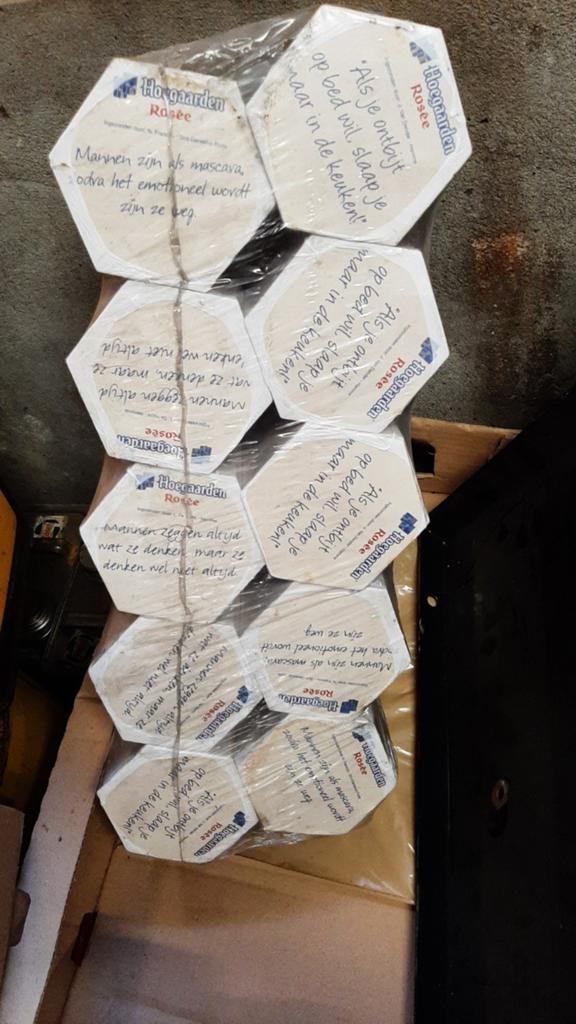 Hoegaarden
Rosée
Mannen zijn als mascara,
zodra het emotioneel wordt
zijn ze weg.
Hoegaarden
Rosée
"Als je ontbijt
op bed wil slaap je
maar in de keuken!"
Hoegaarden
Rosée
Mannen zeggen altijd
wat ze denken, maar ze
denken wel niet altijd.
Hoegaarden
Rosée
"Als je ontbijt
op bed wil slaap je
maar in de keuken!"
Hoegaarden
Rosée
Mannen zeggen altijd
wat ze denken, maar ze
denken wel niet altijd.
Hoegaarden
Rosée
"Als je ontbijt
op bed wil slaap je
maar in de keuken!"
Hoegaarden
Rosée
Mannen zeggen altijd
wat ze denken, maar ze
denken wel niet altijd.
Hoegaarden
Rosée
Mannen zijn als mascara,
zodra het emotioneel wordt
zijn ze weg.
Hoegaarden
Rosée
"Als je ontbijt
op bed wil slaap je
maar in de keuken!"
Hoegaarden
Rosée
Mannen zijn als mascara,
zodra het emotioneel wordt
zijn ze weg.